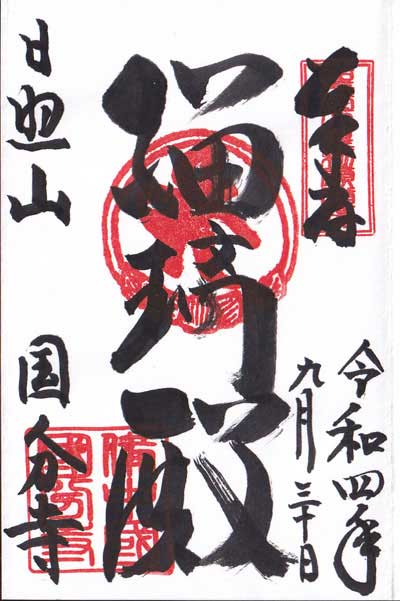 令和四年
九月三十日
瑠璃殿
日照山 国分寺